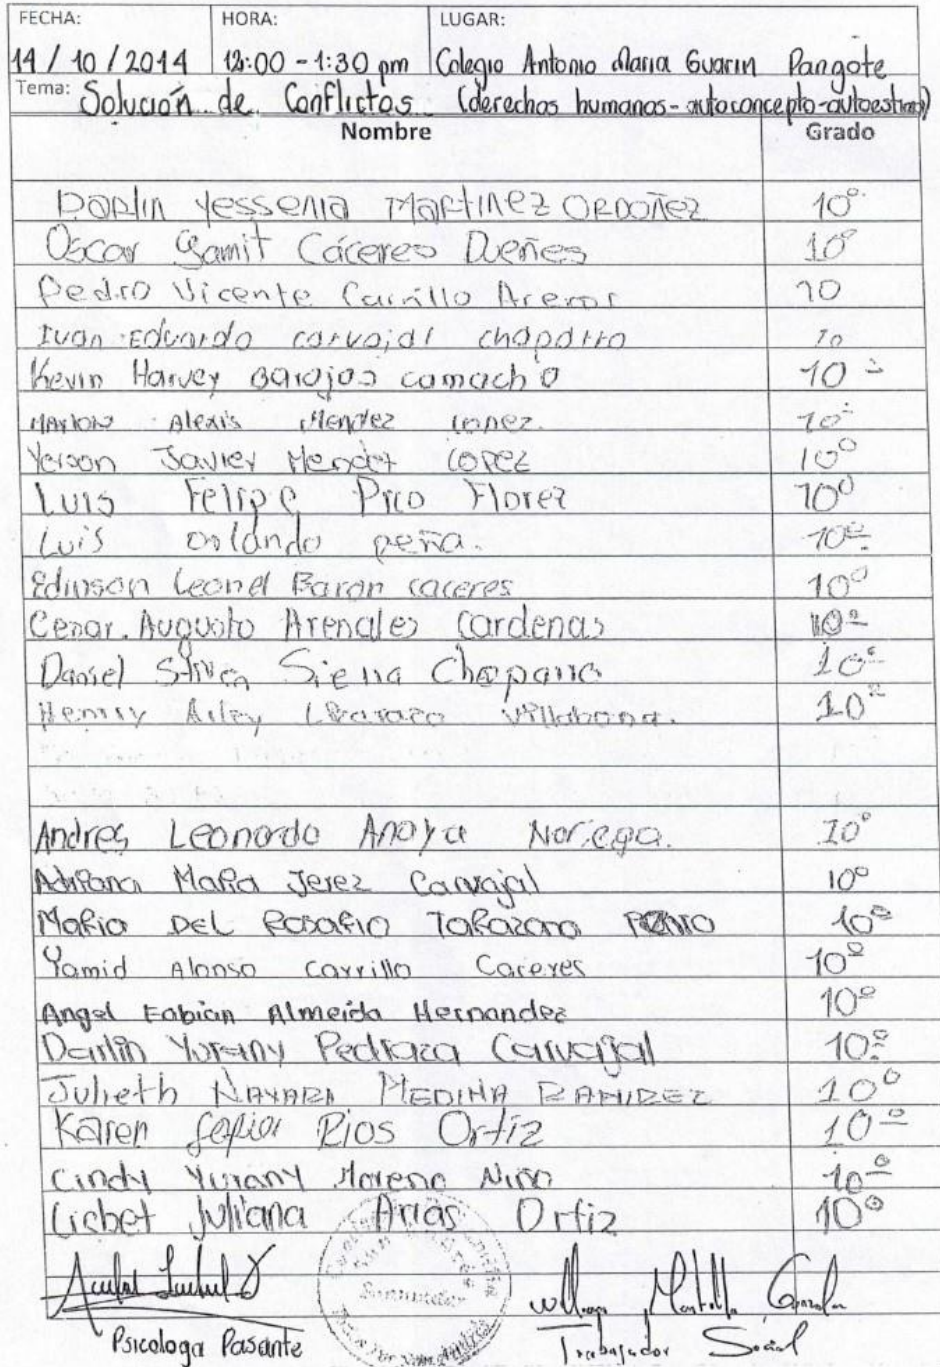 FECHA: HORA: LUGAR:
14/10/2014 12:00 - 1:30 pm Colegio Antonio Maria Guarin Pangote
Tema: Solución de Conflictos (derechos humanos - autoconcepto - autoestima)
Nombre Grado
Darlin Yessenia Martinez Ordoñez 10°
Oscar Yamit Cáceres Dueñes 10°
Pedro Vicente Carrillo 10
Ivan Eduardo carvajal chaparro 10
Kevin Harvey Barajas camacho 10°
Marlon Alexis Mendez Lopez. 10°
Yerson Javier Mendez Lopez 10°
Luis Felipe Pico Florez 10°
Luis Orlando peña. 10°
Edinson Leonel Baron caceres 10°
Cesar Augusto Arenales Cardenas 10°
Daniel Stiven Sierra Chaparro 10°
Henrry Arley Villabona. 10°
Andres Leonardo Anaya Noriega. 10°
Adriana Maria Jerez Carvajal 10°
Maria Del Rosario Tarazona 10°
Yamid Alonso Carrillo Caceres 10°
Angel Fabian Almeida Hernandez 10°
Darlin Yurany Pedraza Carvajal 10°
Julieth Nayara Medina Ramirez 10°
Karen Sofia Rios Ortiz 10°
Cindy Yurany Moreno Niño 10°
Lisbet Juliana Arias Ortiz 10°
Santander
Psicologa Pasante Trabajador Social